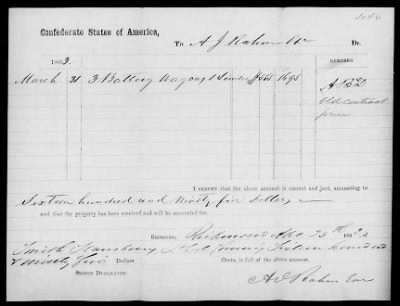 Confederate States of America,
To A J Rahm & Co Dr.
1863. REMARKS
March 31 3 Battery Wagons & Limbers $565 1695
Old contract
price
I CERTIFY that the above account is correct and just, amounting to
Sixteen hundred and Ninety five Dollars
and that the property has been received and will be accounted for.
RECEIVED, Richmond
Smith Sixteen hundred
& ninety five Dollars Cents, in full of the above account.
SIGNED DUPLICATES. A J Rahm